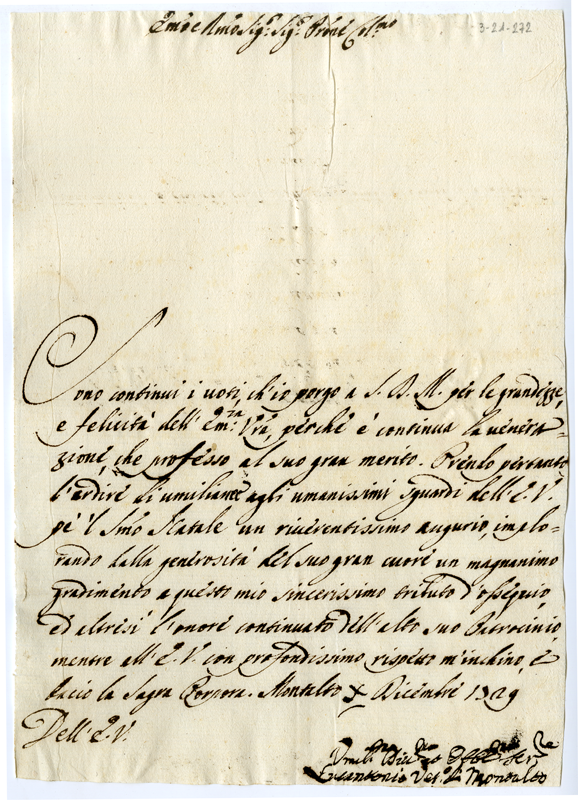 Em̃o e Rm̃o Sig.r Sig.r Prõne Col.mo
3-21-272
Sono continui i voti, ch'io porgo a S. D. M. per le grandezze,
e felicità dell' Em.za Vrã, perche è continua la venera=
zione, che professo al suo gran merito. Prendo pertanto
l'ardire di umiliare agli umanissimi sguardi dell' E. V.
pe 'l Sm̃o Natale un riverentissimo augurio, implo=
rando dalla generosità del suo gran cuore un magnanimo
gradimento a questo mio sincerissimo tributo d'ossequio,
ed altresi l'onore continuato dell' alto suo Patrocinio,
mentre all' E. V. con profondissimo rispetto m'inchino, e
bacio la Sagra Porpora. Montalto X Dicembre 1729
Dell' E. V.
Umil.mo Div.mo et Obbl.mo Ser.re
Lucantonio Ves.o di Montalto